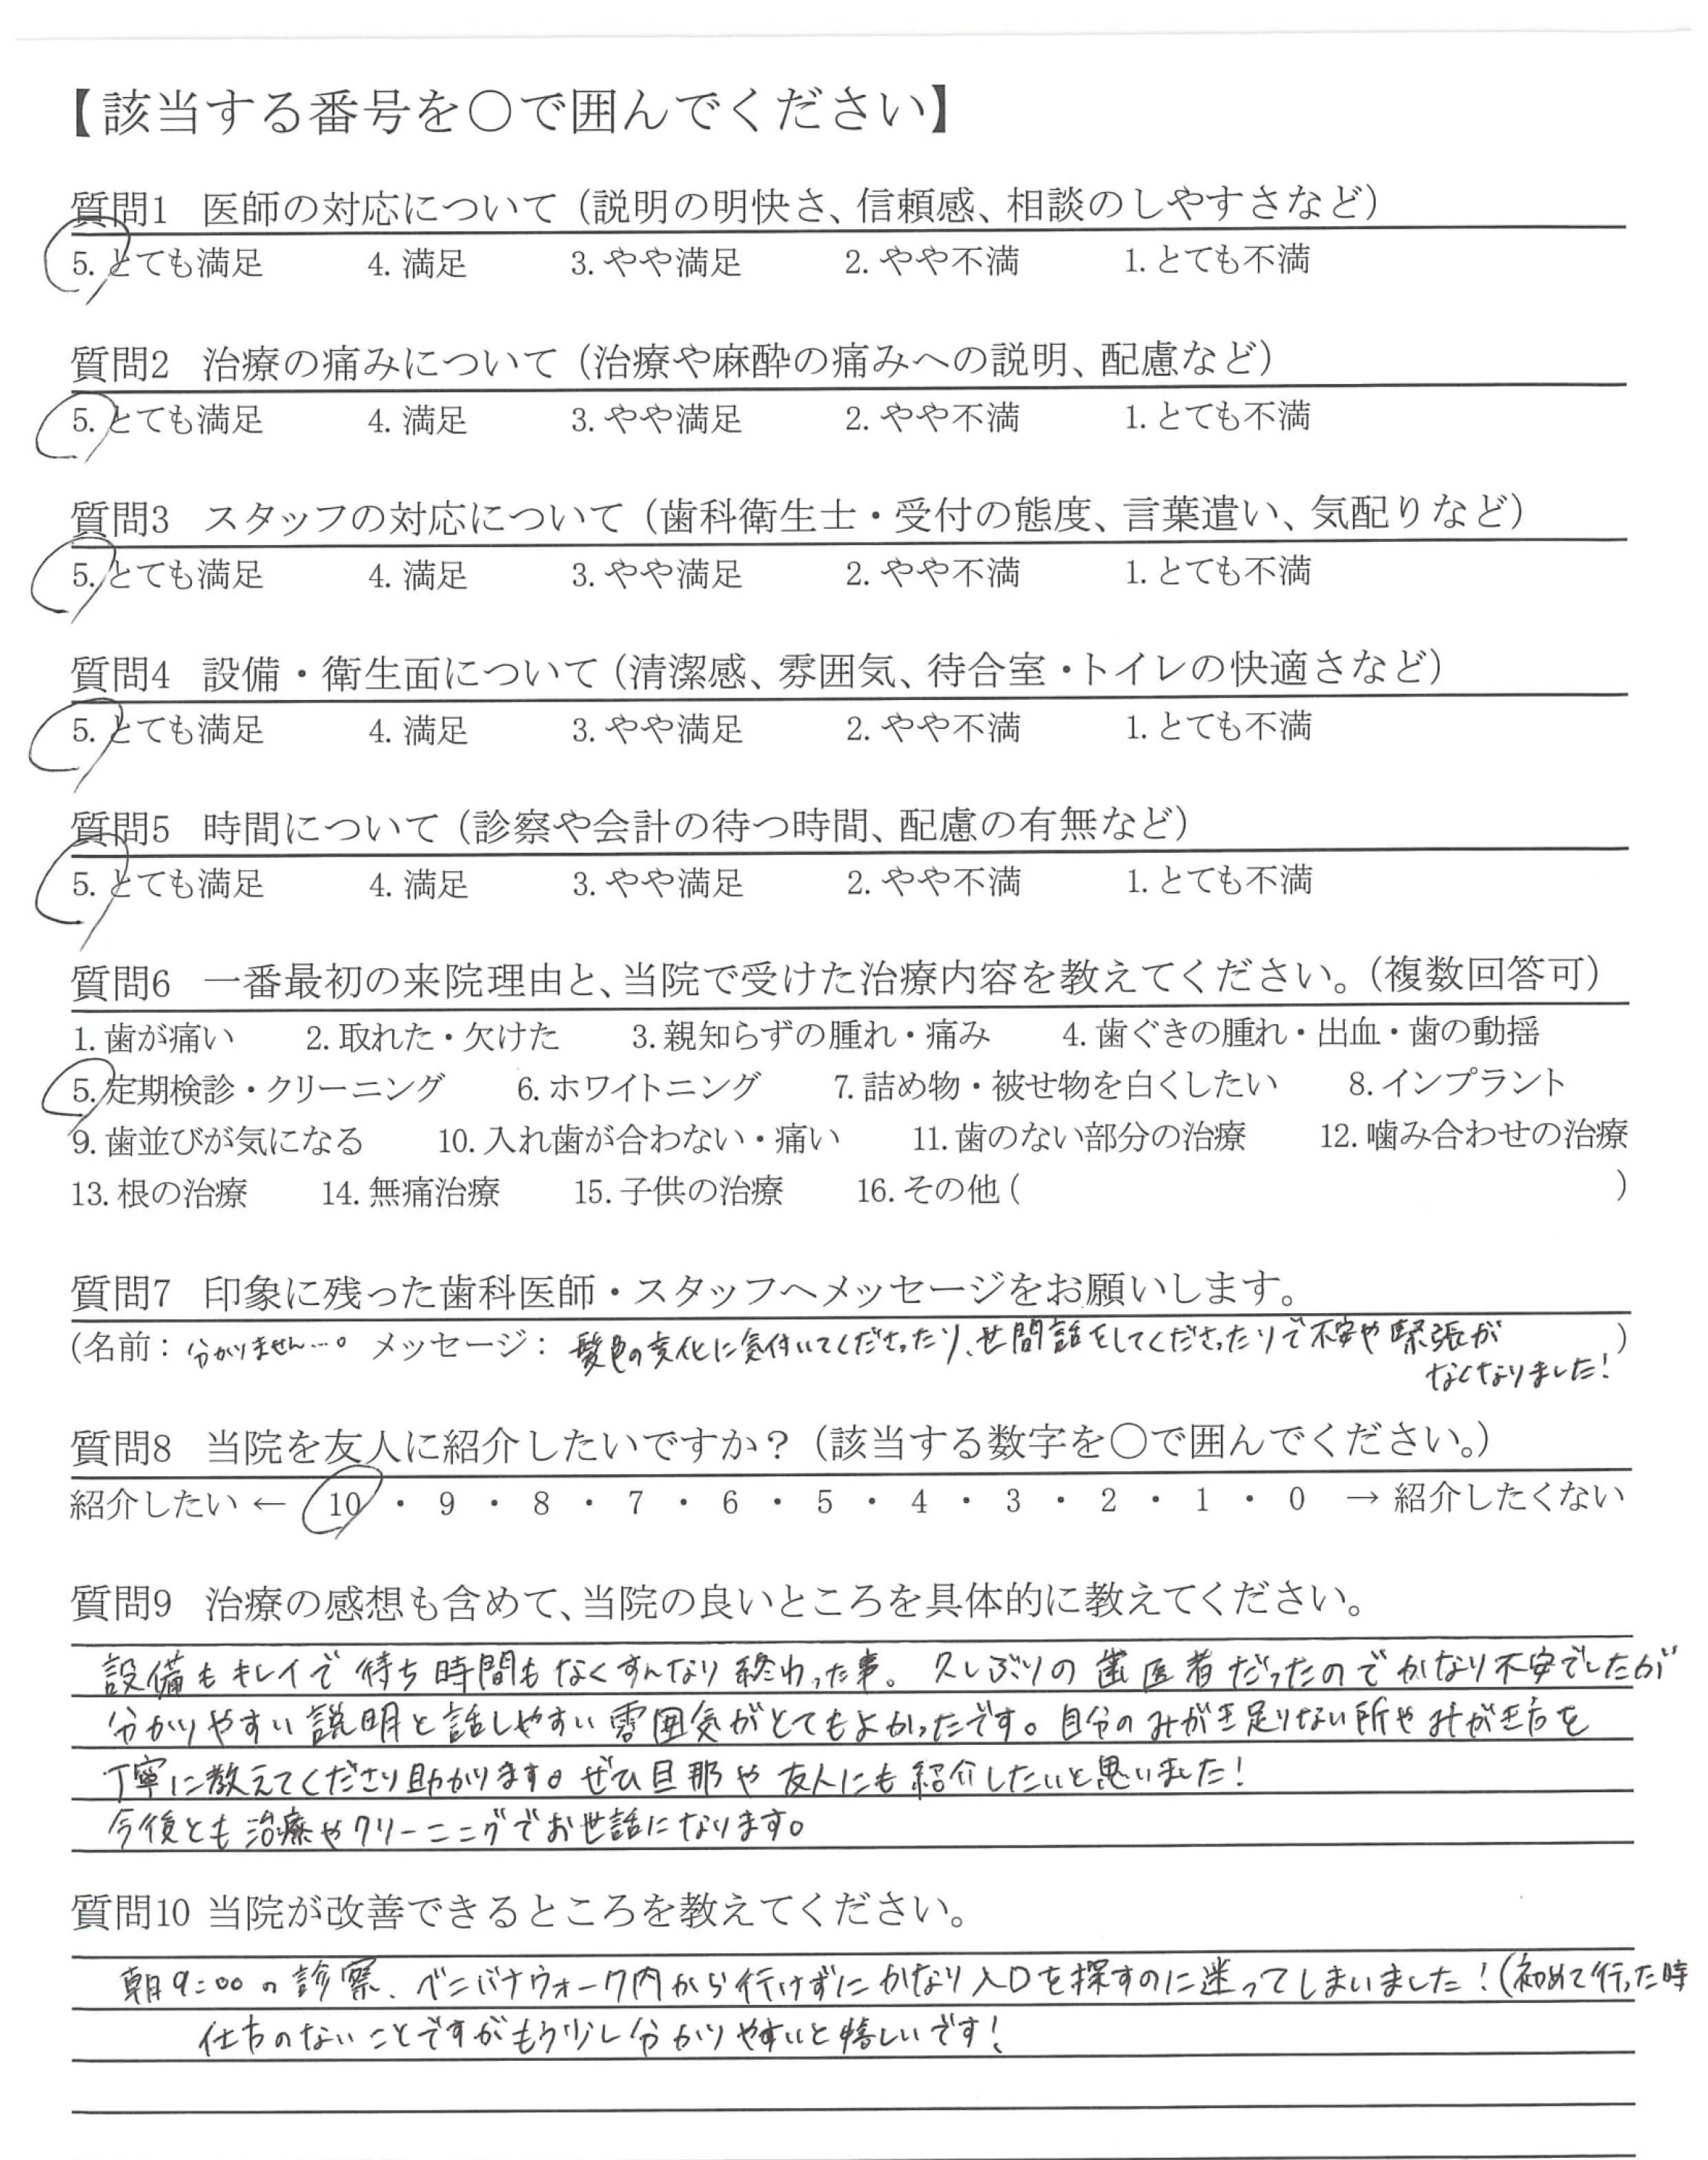 【該当する番号を〇で囲んでください】
質問1 医師の対応について（説明の明快さ、信頼感、相談のしやすさなど）
5.とても満足 4.満足 3.やや満足 2.やや不満 1.とても不満
質問2 治療の痛みについて（治療や麻酔の痛みへの説明、配慮など）
5.とても満足 4.満足 3.やや満足 2.やや不満 1.とても不満
質問3 スタッフの対応について（歯科衛生士・受付の態度、言葉遣い、気配りなど）
5.とても満足 4.満足 3.やや満足 2.やや不満 1.とても不満
質問4 設備・衛生面について（清潔感、雰囲気、待合室・トイレの快適さなど）
5.とても満足 4.満足 3.やや満足 2.やや不満 1.とても不満
質問5 時間について（診察や会計の待つ時間、配慮の有無など）
5.とても満足 4.満足 3.やや満足 2.やや不満 1.とても不満
質問6 一番最初の来院理由と、当院で受けた治療内容を教えてください。（複数回答可）
1.歯が痛い 2.取れた・欠けた 3.親知らずの腫れ・痛み 4.歯ぐきの腫れ・出血・歯の動揺
5.定期検診・クリーニング 6.ホワイトニング 7.詰め物・被せ物を白くしたい 8.インプラント
9.歯並びが気になる 10.入れ歯が合わない・痛い 11.歯のない部分の治療 12.噛み合わせの治療
13.根の治療 14.無痛治療 15.子供の治療 16.その他（ ）
質問7 印象に残った歯科医師・スタッフへメッセージをお願いします。
（名前：分かりません…。 メッセージ：髪色の変化に気付いてくださったり、世間話をしてくださったりで不安や緊張が ）
なくなりました！
質問8 当院を友人に紹介したいですか？（該当する数字を〇で囲んでください。）
紹介したい ← 10 ・ 9 ・ 8 ・ 7 ・ 6 ・ 5 ・ 4 ・ 3 ・ 2 ・ 1 ・ 0 → 紹介したくない
質問9 治療の感想も含めて、当院の良いところを具体的に教えてください。
設備もキレイで待ち時間もなくすんなり終わった事。久しぶりの歯医者だったのでかなり不安でしたが
分かりやすい説明と話しやすい雰囲気がとてもよかったです。自分のみがき足りない所やみがき方を
丁寧に教えてくださり助かります。ぜひ旦那や友人にも紹介したいと思いました！
今後とも治療やクリーニングでお世話になります。
質問10 当院が改善できるところを教えてください。
朝9:00の診察、ベニバナウォーク内から行けずにかなり入口を探すのに迷ってしまいました！（初めて行った時
仕方のないことですがもう少し分かりやすいと嬉しいです！